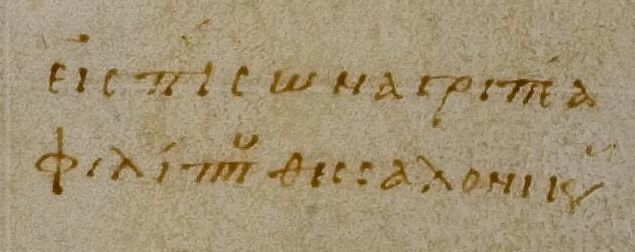 εἰς πίσωνα γριπέα
φιλίππου θεσσαλονικ